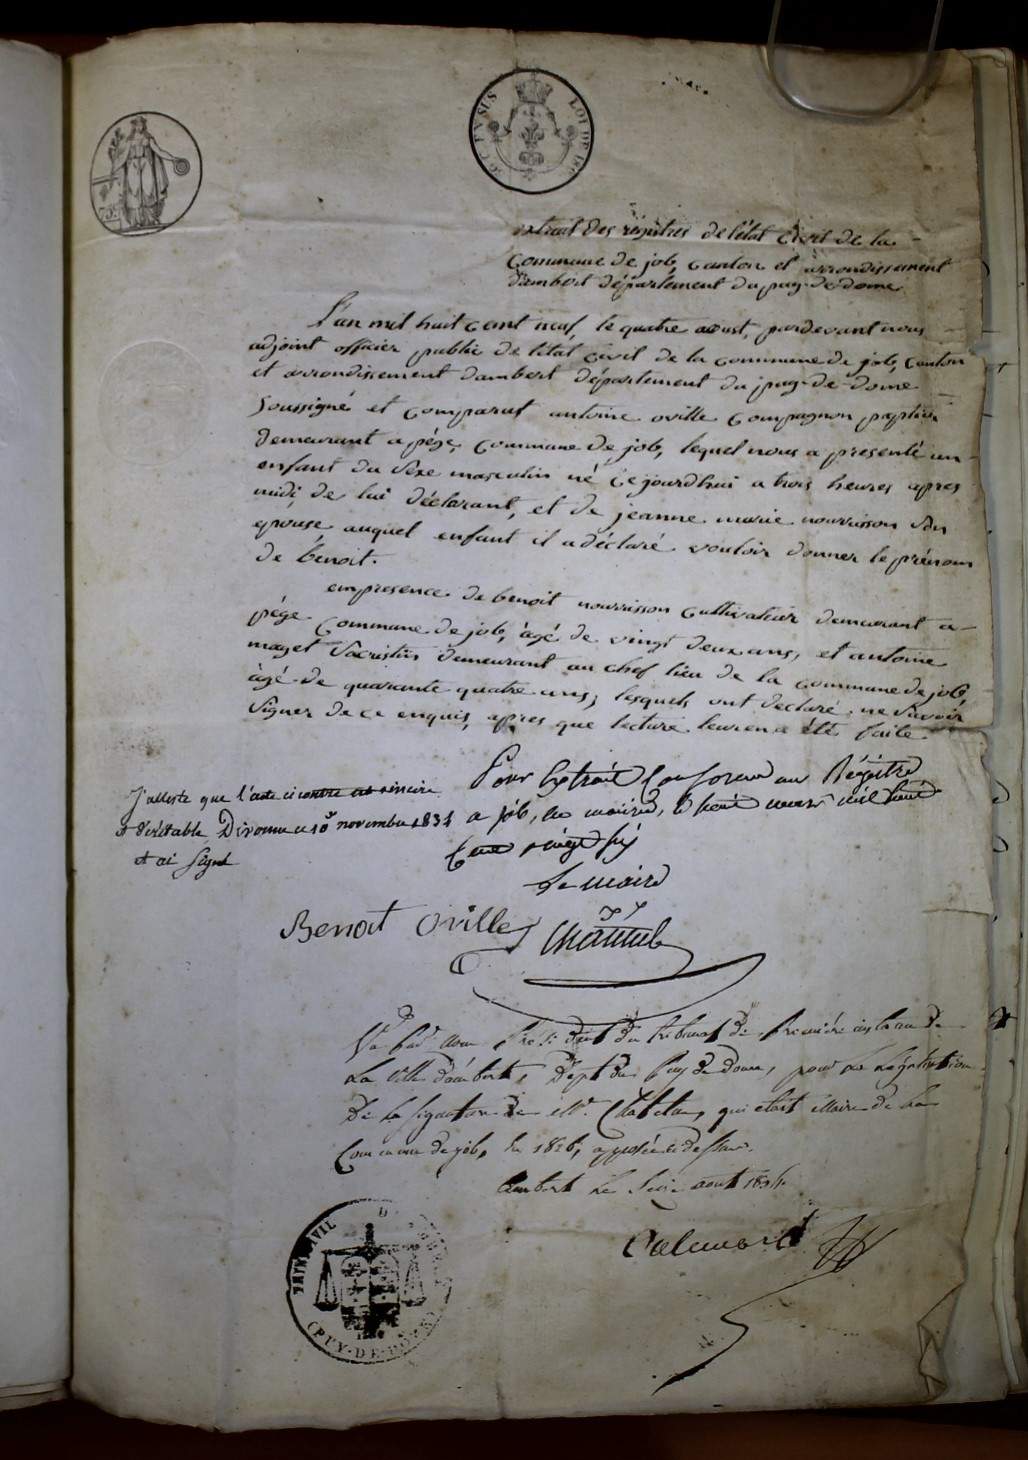 extrait des régistres de létat Civil de la
Commune de job, canton et arrondissement
d'ambert département du puy-de-dome
L'an mil huit cent neuf, le quatre aoust, pardevant nous
adjoint officier public de létat civil de la commune de job, canton
et arrondissement dambert département du puy-de-dome
Soussigné et Comparut antoine oville Compagnon papetier
demeurant a pége, commune de job, lequel nous a presenté un
enfant du Sexe masculin né cejourdhui a trois heures apres
midi, de lui déclarant, et de jeanne marie nourisson son
epouse auquel enfant il a déclaré vouloir donner le prénom
de bénoit.
en presence de benoit nourrisson Cultivateur demeurant a
pége Commune de job, àgé de vingt deux ans, et antoine
mayet Sacristin demeurant au chef lieu de la commune de job,
àgé de quarante quatre ans, lesquels ont declaré ne Savoir
Signer de ce enquis, apres que lecture leur en a été faite.
Pour Extrait Conforme au Régistre
a job, en mairie, le mars mil huit
Cent vingt six
Le maire
J'atteste que l'acte ci contre est sincire
et véritable Divonne ce 10 novembre 1834
et ai Signé
Benoit Oville
Vu par nous Président du tribunal de première instance de
la ville d'ambert, Dépt du Puy de Dome, pour la légalisation
De la Signature de Mr. qui était Maire de la
Commune de job, en 1826, apposée ci dessus.
Ambert le Seize aout 1834
TRIBL CIVIL D
(PUY-DE-DOME)